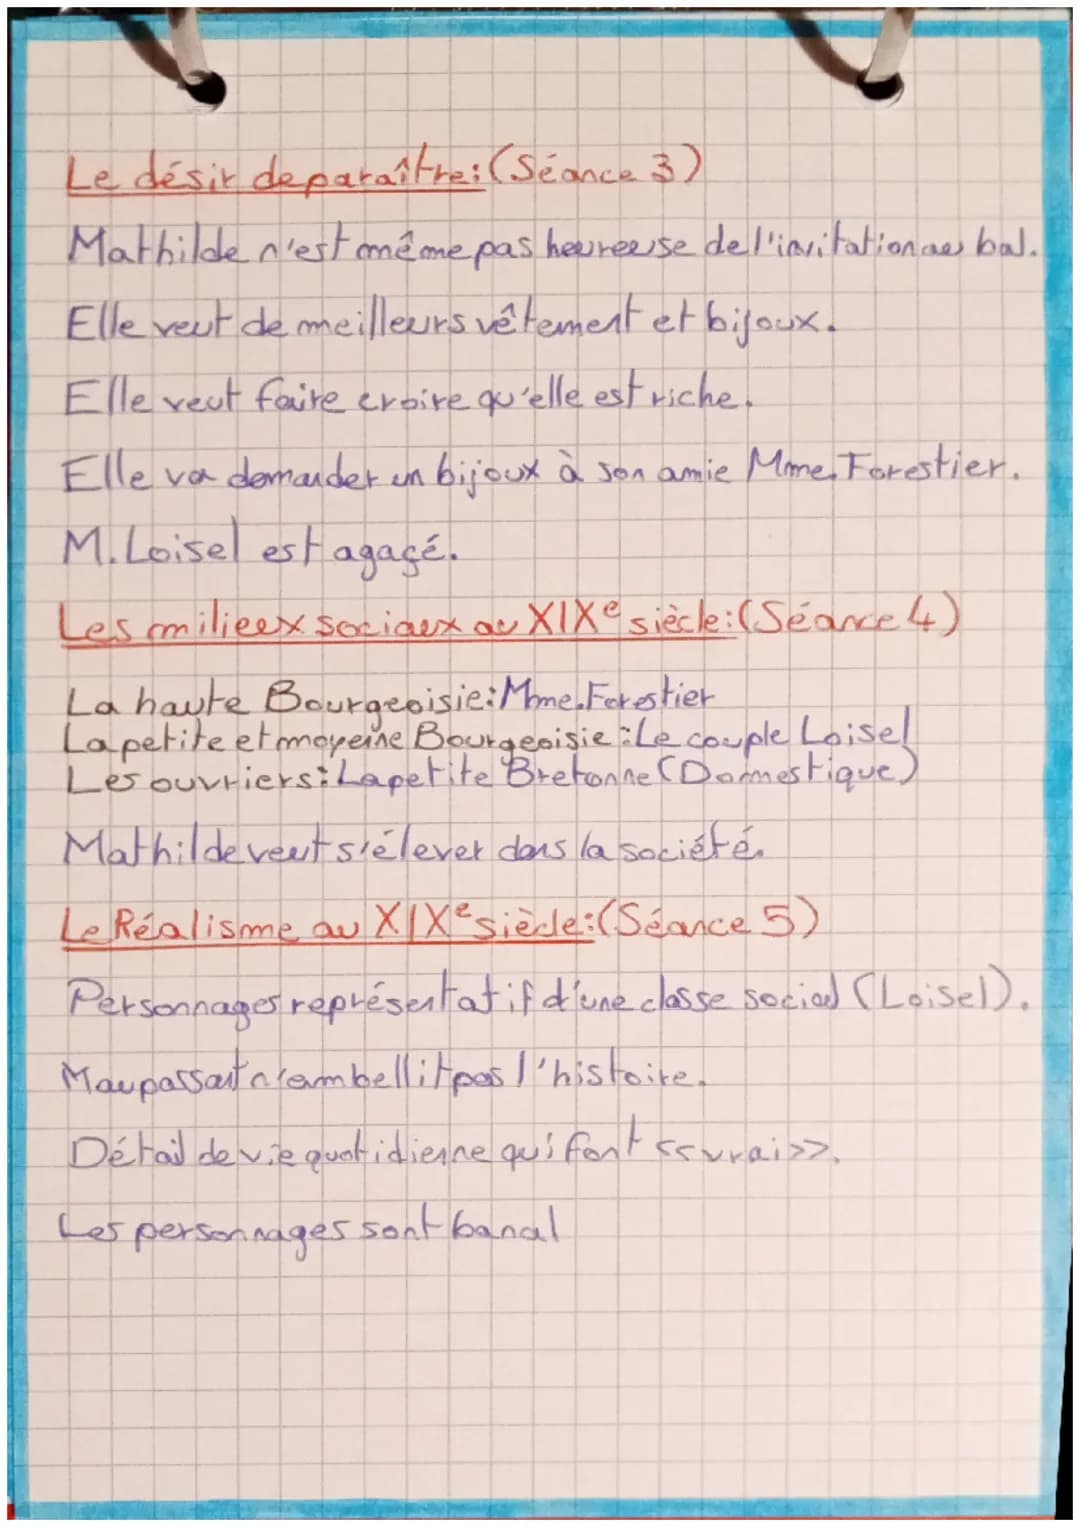 Le désir de paraître: (Séance 3)
Mathilde n'est même pas heureuse de l'invitation au bal.
Elle veut de meilleurs vêtement et bijoux.
Elle veut faire croire qu'elle est riche.
Elle va demander un bijoux à son amie Mme. Forestier.
M. Loisel est agaçé.
Les milieux sociaux au XIXe siècle: (Séance 4)
La haute Bourgeoisie: Mme. Forestier
La petite et moyeine Bourgeoisie: Le couple Loisel
Les ouvriers: La petite Bretonne (Domestique)
Mathilde veut s'élever dans la société.
Le Réalisme au XIXe siècle: (Séance 5)
Personnages représentatif d'une classe social (Loisel).
Maupassant n'embellit pas l'histoire.
Détail de vie quotidienne qui font <<vrai>>.
Les personnages sont banal